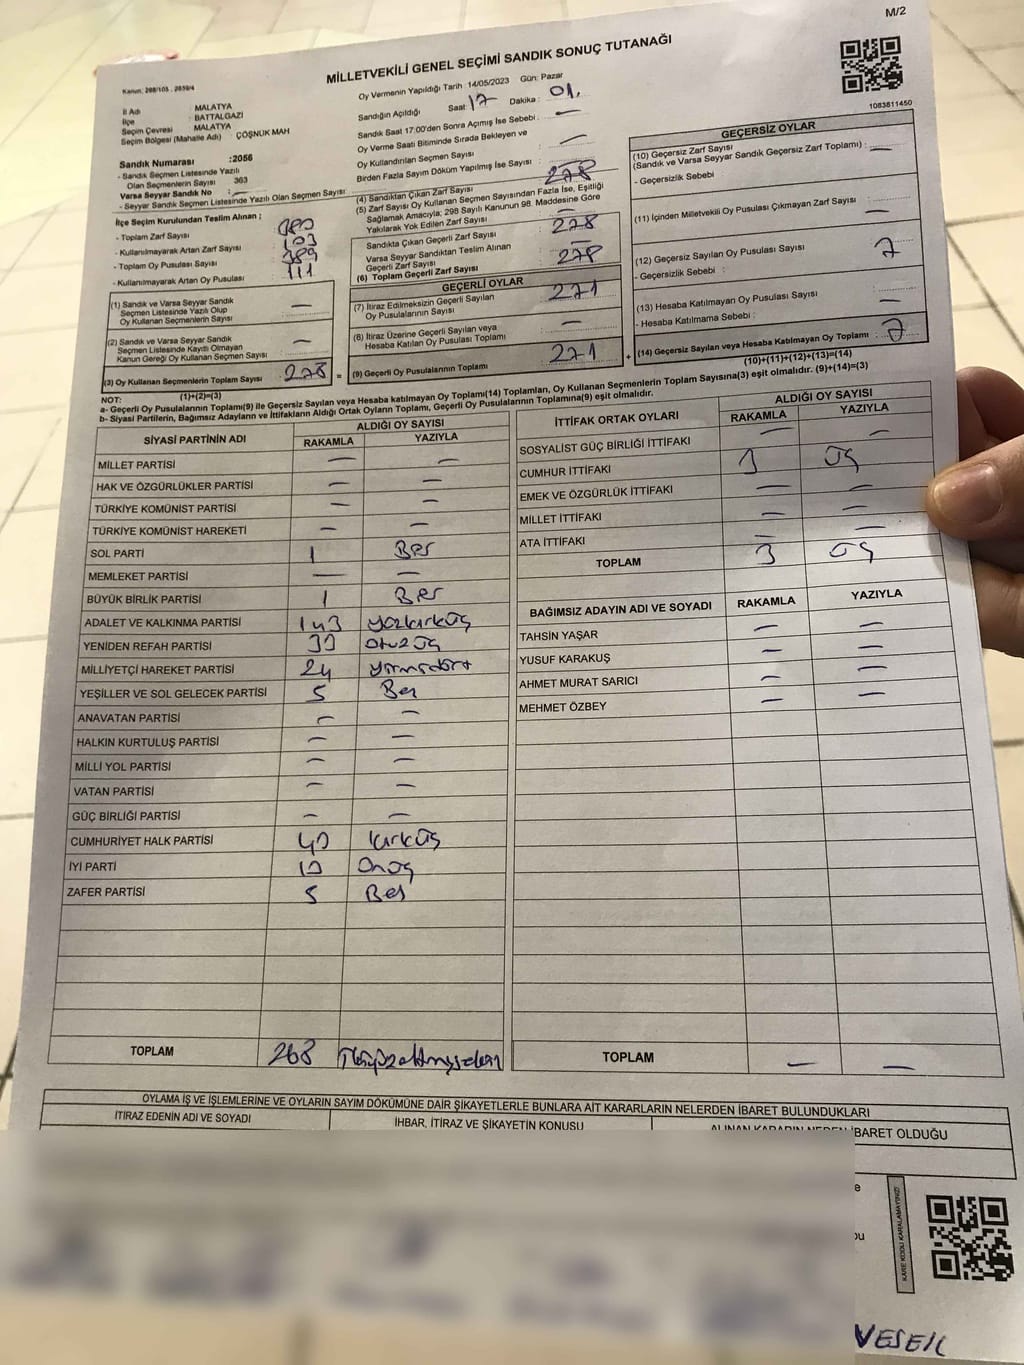 M/2
MİLLETVEKİLİ GENEL SEÇİMİ SANDIK SONUÇ TUTANAĞI
Kanun: 298/105, 2839/4
Oy Vermenin Yapıldığı Tarih : 14/05/2023 Gün: Pazar
İl Adı : MALATYA
İlçe : BATTALGAZİ
Seçim Çevresi : MALATYA
Seçim Bölgesi (Mahalle Adı) : ÇÖŞNUK MAH
Sandık Numarası :2056
- Sandık Seçmen Listesinde Yazılı
Olan Seçmenlerin Sayısı 363
Varsa Seyyar Sandık No : —
- Seyyar Sandık Seçmen Listesinde Yazılı Olan Seçmen Sayısı:
İlçe Seçim Kurulundan Teslim Alınan ;
- Toplam Zarf Sayısı
- Kullanılmayarak Artan Zarf Sayısı 103
- Toplam Oy Pusulası Sayısı 389
- Kullanılmayarak Artan Oy Pusulası 111
(1) Sandık ve Varsa Seyyar Sandık
Seçmen Listesinde Yazılı Olup
Oy Kullanan Seçmenlerin Sayısı : —
(2) Sandık ve Varsa Seyyar Sandık
Seçmen Listesinde Kayıtlı Olmayan
Kanun Gereği Oy Kullanan Seçmen Sayısı : —
(3) Oy Kullanan Seçmenlerin Toplam Sayısı : 278
(1)+(2)=(3)
Sandığın Açıldığı Saat : 17 Dakika : 01.
Sandık Saat 17:00'den Sonra Açımış İse Sebebi : —
Oy Verme Saati Bitiminde Sırada Bekleyen ve
Oy Kullandırılan Seçmen Sayısı : —
Birden Fazla Sayım Döküm Yapılmış İse Sayısı : —
(4) Sandıktan Çıkan Zarf Sayısı : 278
(5) Zarf Sayısı Oy Kullanan Seçmen Sayısından Fazla İse, Eşitliği
Sağlamak Amacıyla; 298 Sayılı Kanunun 98. Maddesine Göre
Yakılarak Yok Edilen Zarf Sayısı : —
Sandıkta Çıkan Geçerli Zarf Sayısı : 278
Varsa Seyyar Sandıktan Teslim Alınan
Geçerli Zarf Sayısı : —
(6) Toplam Geçerli Zarf Sayısı : 278
GEÇERLİ OYLAR
(7) İtiraz Edilmeksizin Geçerli Sayılan
Oy Pusulalarının Sayısı : 271
(8) İtiraz Üzerine Geçerli Sayılan veya
Hesaba Katılan Oy Pusulası Toplamı : —
(9) Geçerli Oy Pusulalarının Toplamı : 271
1083811450
GEÇERSİZ OYLAR
(10) Geçersiz Zarf Sayısı
(Sandık ve Varsa Seyyar Sandık Geçersiz Zarf Toplamı) : —
- Geçersizlik Sebebi
(11) İçinden Milletvekili Oy Pusulası Çıkmayan Zarf Sayısı : —
(12) Geçersiz Sayılan Oy Pusulası Sayısı : 7
- Geçersizlik Sebebi :
(13) Hesaba Katılmayan Oy Pusulası Sayısı : —
- Hesaba Katılmama Sebebi :
(14) Geçersiz Sayılan veya Hesaba Katılmayan Oy Toplamı : 7
(10)+(11)+(12)+(13)=(14)
NOT:
a- Geçerli Oy Pusulalarının Toplamı(9) ile Geçersiz Sayılan veya Hesaba katılmayan Oy Toplamı(14) Toplamları, Oy Kullanan Seçmenlerin Toplam Sayısına(3) eşit olmalıdır. (9)+(14)=(3)
b- Siyasi Partilerin, Bağımsız Adayların ve İttifakların Aldığı Ortak Oyların Toplamı, Geçerli Oy Pusulalarının Toplamına(9) eşit olmalıdır.
SİYASİ PARTİNİN ADI ALDIĞI OY SAYISI
RAKAMLA YAZIYLA
MİLLET PARTİSİ — —
HAK VE ÖZGÜRLÜKLER PARTİSİ — —
TÜRKİYE KOMÜNİST PARTİSİ — —
TÜRKİYE KOMÜNİST HAREKETİ — —
SOL PARTİ 1 Bir
MEMLEKET PARTİSİ — —
BÜYÜK BİRLİK PARTİSİ 1 Bir
ADALET VE KALKINMA PARTİSİ 143 yüzkırküç
YENİDEN REFAH PARTİSİ 33 otuzüç
MİLLİYETÇİ HAREKET PARTİSİ 24 yirmidört
YEŞİLLER VE SOL GELECEK PARTİSİ 5 Beş
ANAVATAN PARTİSİ — —
HALKIN KURTULUŞ PARTİSİ — —
MİLLİ YOL PARTİSİ — —
VATAN PARTİSİ — —
GÜÇ BİRLİĞİ PARTİSİ — —
CUMHURİYET HALK PARTİSİ 43 kırküç
İYİ PARTİ 13 Onüç
ZAFER PARTİSİ 5 Beş
TOPLAM 268 İkiyüzaltmışsekiz
İTTİFAK ORTAK OYLARI ALDIĞI OY SAYISI
RAKAMLA YAZIYLA
SOSYALİST GÜÇ BİRLİĞİ İTTİFAKI — —
CUMHUR İTTİFAKI 3 üç
EMEK VE ÖZGÜRLÜK İTTİFAKI — —
MİLLET İTTİFAKI — —
ATA İTTİFAKI — —
TOPLAM 3 üç
BAĞIMSIZ ADAYIN ADI VE SOYADI RAKAMLA YAZIYLA
TAHSİN YAŞAR — —
YUSUF KARAKUŞ — —
AHMET MURAT SARICI — —
MEHMET ÖZBEY — —
TOPLAM — —
OYLAMA İŞ VE İŞLEMLERİNE VE OYLARIN SAYIM DÖKÜMÜNE DAİR ŞİKAYETLERLE BUNLARA AİT KARARLARIN NELERDEN İBARET BULUNDUKLARI
İTİRAZ EDENİN ADI VE SOYADI İHBAR, İTİRAZ VE ŞİKAYETİN KONUSU ALINAN KARARIN NEDEN İBARET OLDUĞU
KARE KODU KARALAMAYINIZ!